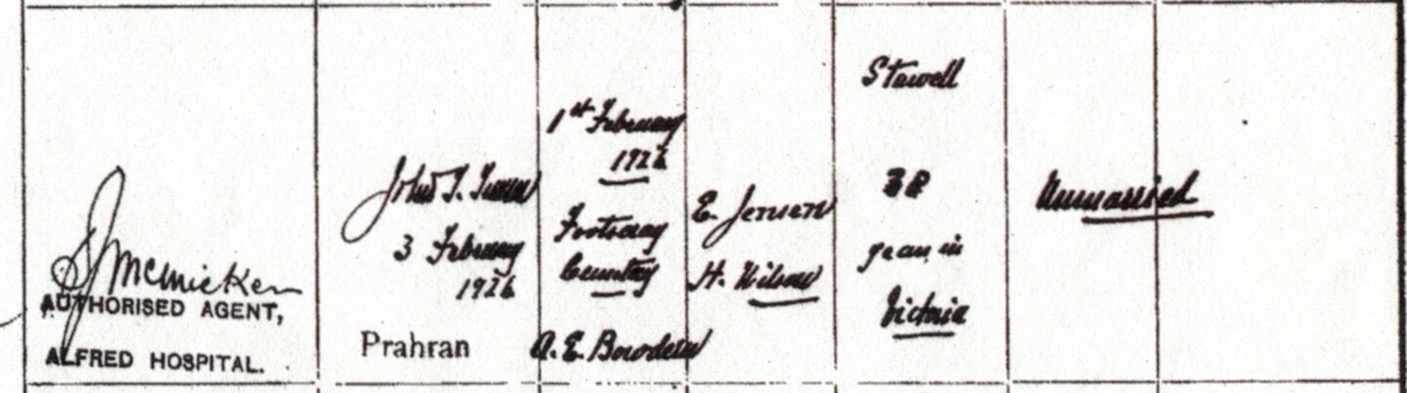 McMicken
AUTHORISED AGENT,
ALFRED HOSPITAL.
John T.
3 February
1926
Prahran
1st February
1926
Footscray
Cemetery
A. E. Bowden
E. Jensen
H. Wilson
Stawell
38
years in
Victoria
Unmarried